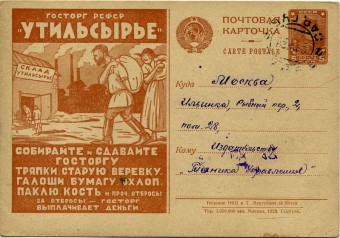 ГОСТОРГ РСФСР
"УТИЛЬСЫРЬЕ"
СКЛАД
УТИЛЬСЫРЬЕ
СОБИРАЙТЕ и СДАВАЙТЕ
ГОСТОРГУ
ТРЯПКИ, СТАРУЮ ВЕРЕВКУ,
ГАЛОШИ, БУМАГУ, ХЛОП.
ПАКЛЮ, КОСТЬ и ПРОЧ. ОТБРОСЫ
ЗА ОТБРОСЫ – ГОСТОРГ
ВЫПЛАЧИВАЕТ ДЕНЬГИ.
ПОЧТОВАЯ
КАРТОЧКА
CARTE POSTALE
Куда
Москва,
Ильинка, Рыбный пер, 2,
пом. 28,
Кому
Издательству
"Техника Управления"
Издание НКП и Т.
Москва, 1929.